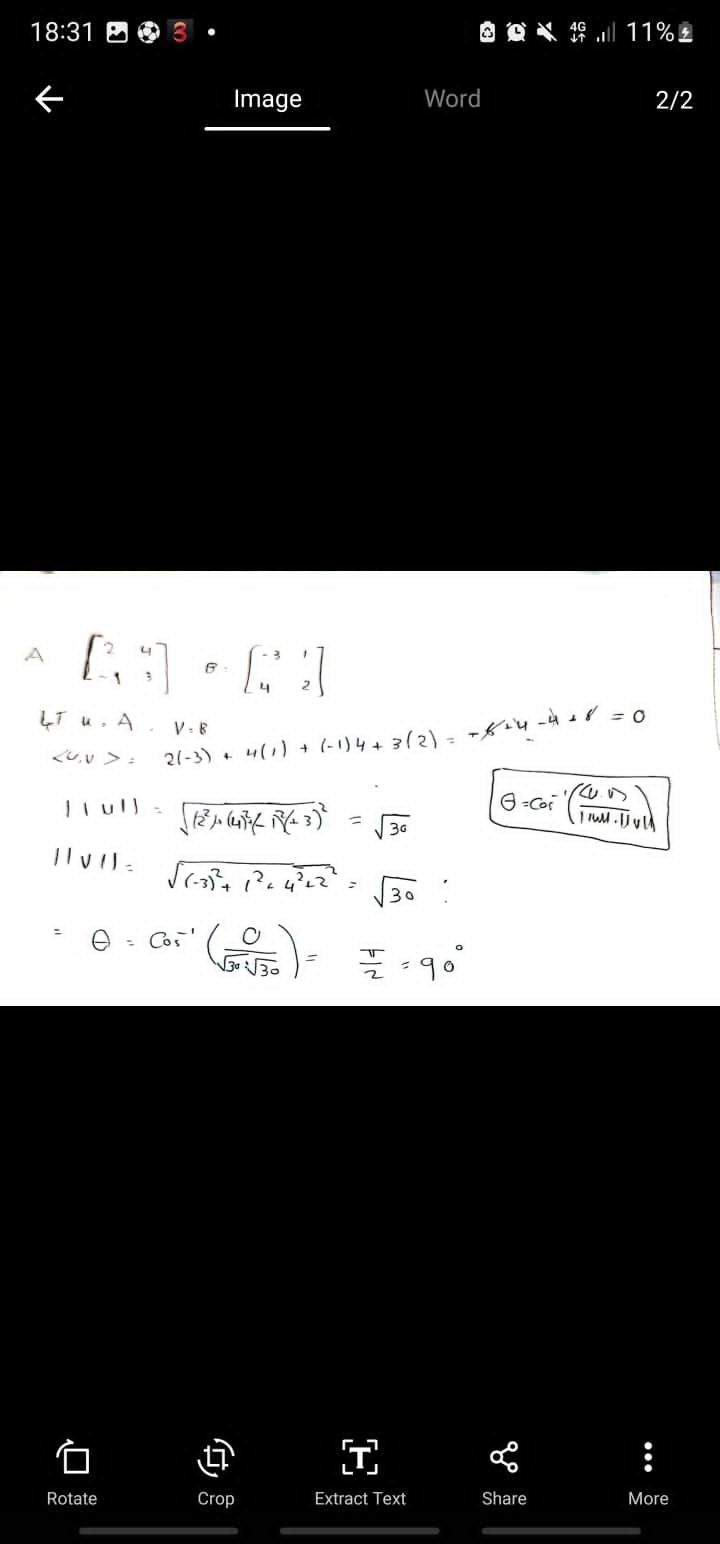 18:31 3 4G 11%
Image Word 2/2
A [2 4
-1 3] B = [-3 1
4 2]
LT u = A . V = B
<u,v> = 2(-3) + 4(1) + (-1)4 + 3(2) = -6+4 -4 + 6 = 0
||u|| = √(2²)+(4)²+(-1)²(+3)² = √30
θ = Cos⁻¹ (<u,v>/||u||.||v||)
||v|| = √(-3)²+ 1²+ 4²+2² = √30 :
= θ = Cos⁻¹ (0/√30.√30) = π/2 = 90°
Rotate Crop Extract Text Share More